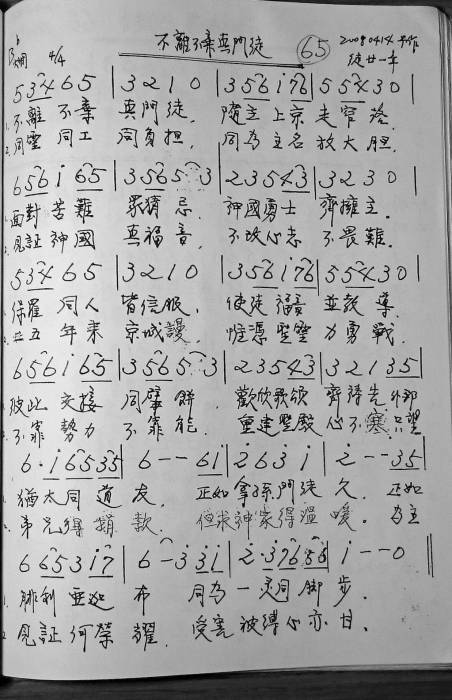 不離不棄真門徒 65 20090414
4/4 徒廿一章
5 3 2 4 6 5 | 3 2 1 0 | 3 5 6 i 7 6 | 5 5 4 3 0 |
1. 不離 不棄 真門徒， 隨主 上京 走窄路，
2. 同靈 同工 同負担， 同為 主名 放大胆，
6 5 6 i 6 5 | 3 5 6 5 · 3 | 2 3 5 4 3 | 3 2 3 0 |
面對 苦難 眾猜忌， 神國勇士 齊擁主，
見証 神國 真福音， 不改心志 不畏難，
5 3 4 6 5 | 3 2 1 0 | 3 5 6 i 7 6 | 5 5 4 3 0 |
1. 保羅 同人 皆信服， 使徒 福音 並教導，
2. 廿五 年來 京城 惟憑 聖靈 力勇戰，
6 5 6 i 6 5 | 3 5 6 5 · 3 | 2 3 5 4 3 | 3 2 1 3 5 |
彼此 交接 同擘餅， 歡欣歌頌 齊禱告 外邦
不靠 勢力 不靠能， 重建聖殿 心不寒 只望
6 · i 6 5 3 5 | 6 - - 6 i | 2 6 3 i | 2 - - 3 5 |
1. 猶太同道 友， 正如 拿孫門徒 久， 正如
2. 弟兄得捐 款， 但求 神家得溫 暖， 為主
6 6 5 3 i 7 | 6 - 3 3 i | 2 · 3 7 6 5 6 | i - - 0 ||
1. 腓利 亞迦 布 同為 一灵同 脚 步，
2. 見証 何榮 耀， 受害 被縛心 亦 甘，